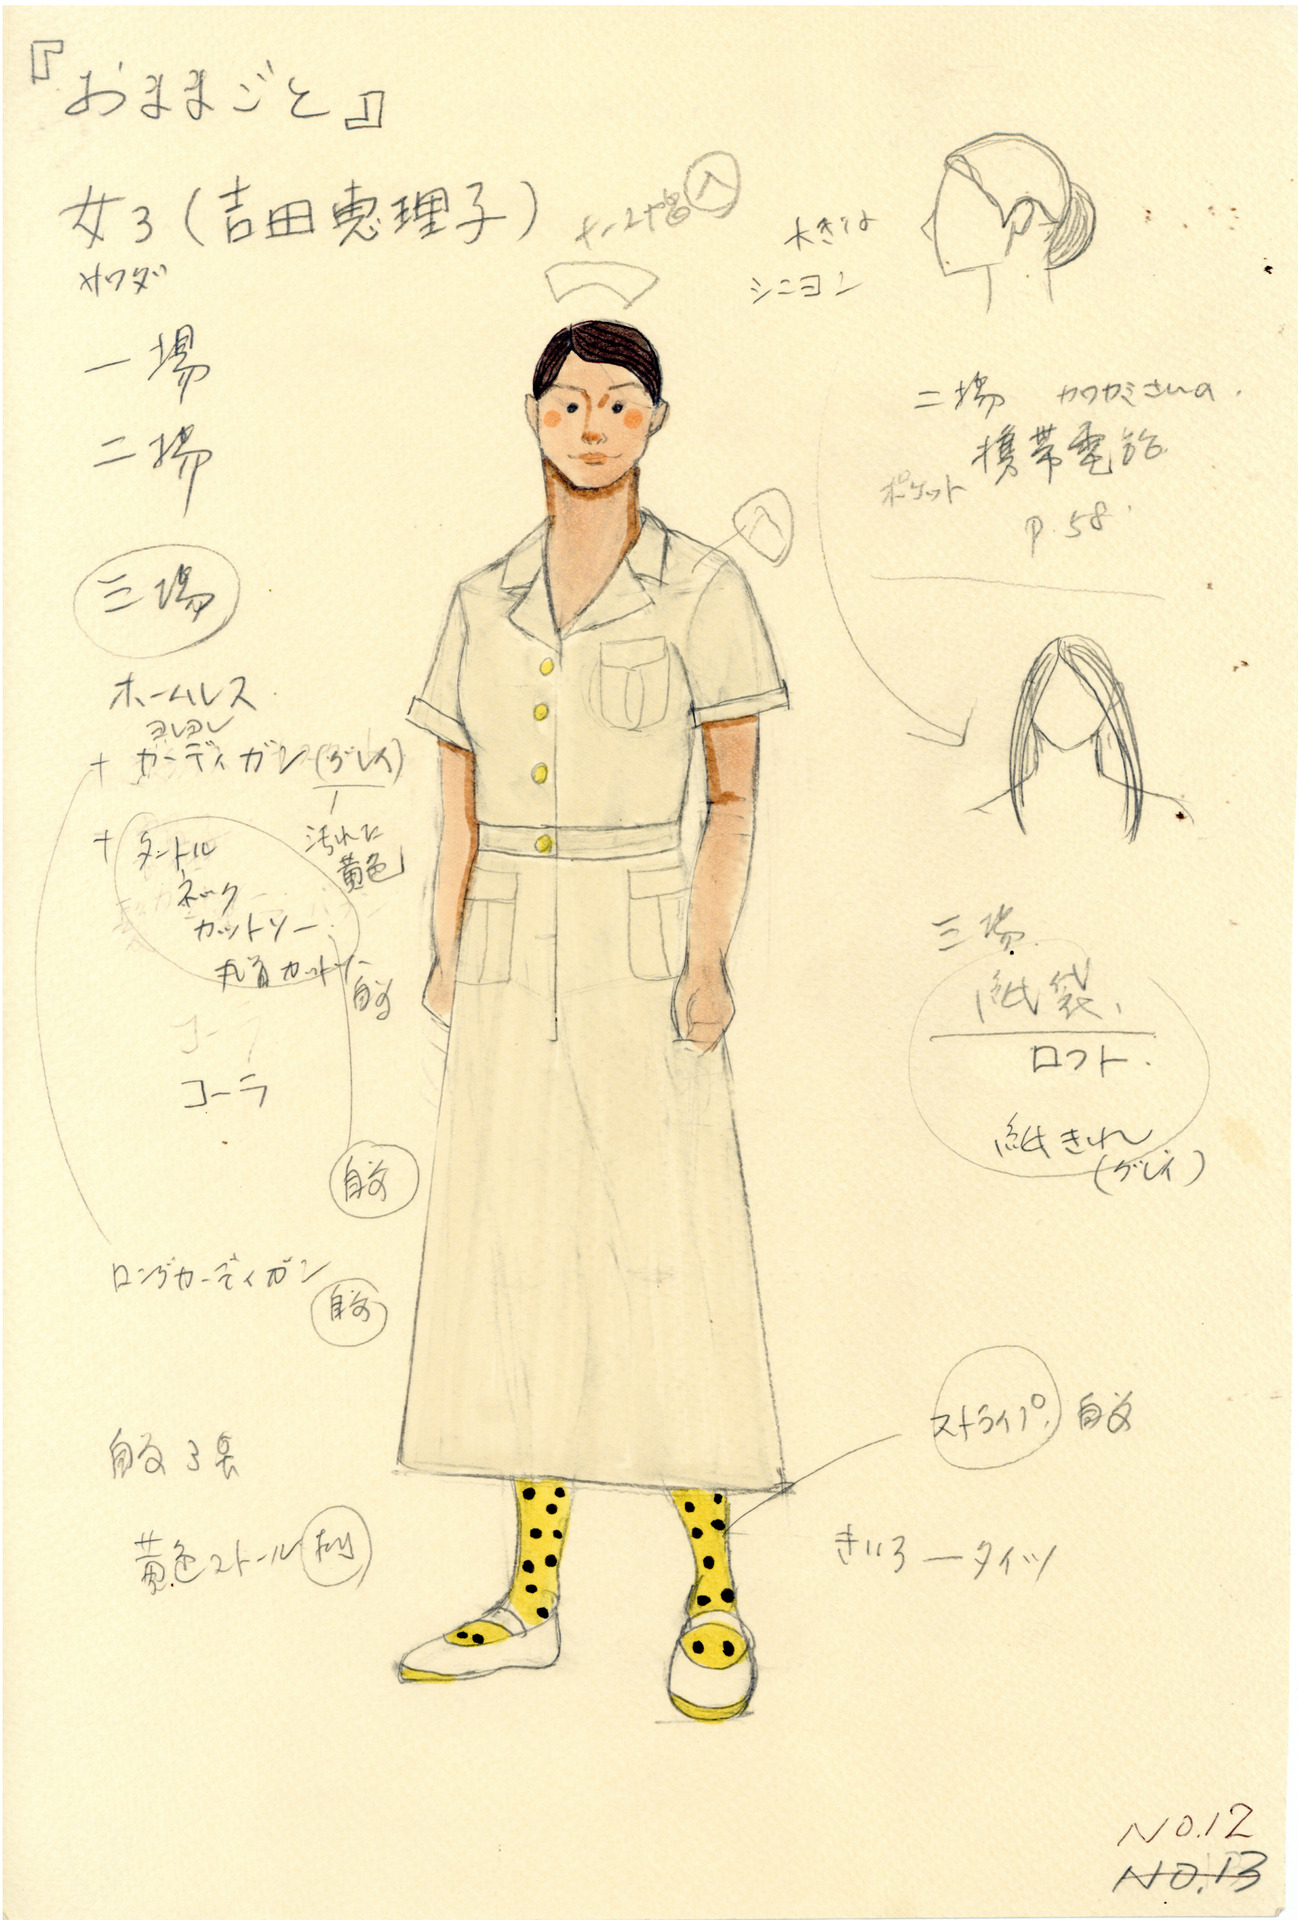 『おままごと』
女3(吉田恵理子)
サワダ
一場
二場
三場
ホームレス
ヨレヨレ
+ カーディガン(グレイ)
汚れた
黄色
+ タートル
ネック
カットソー
丸首カットソー
自前
コーラ
コーラ
自前
ロングカーディガン
自前
自前 3足
黄色ストール
ナース帽
大きな
シニヨン
二場 カワカミさんの
携帯電話
ポケット
P.58
三場
紙袋
ロフト
紙きれ
(グレイ)
ストライプ 自前
きいろータイツ
NO.12
NO.13